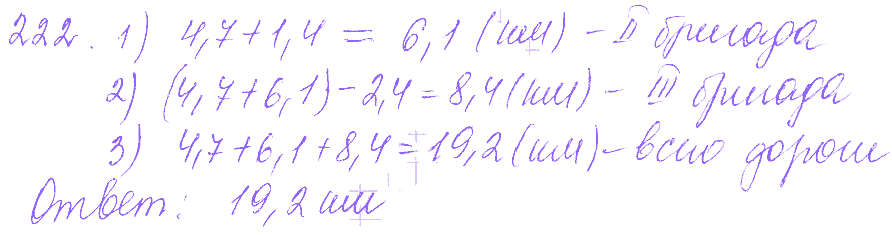 222. 1) 4,7+1,4 = 6,1 (км) - II бригада
2) (4,7+6,1)-2,4=8,4(км) - III бригада
3) 4,7+6,1+8,4=19,2(км)-всю дорогу
Ответ: 19,2 км